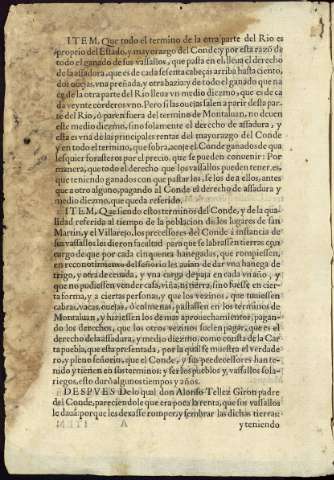 ITEM, Que todo el termino de la otra parte del Rio es
proprio del Estado, y mayorazgo del Conde: y por esta razõ de
todo el ganado de sus vassallos, que pasta en el, lleua el derecho
de la assadura, que es de cada sesenta cabeças arriba hasta ciento,
dos ouejas, vna preñada, y otra bazia: y de todo el ganado que na
ce de la otra parte del Rio lleua vn medio diezmo, que es de ca
da veynte corderos vno. Pero si las ouejas salen a parir desta par
te del Rio, ò paren fuera del termino de Montaluan, no deuen
este medio diezmo, sino solamente el derecho de assadura, y
esta es vna de las principales rentas del mayorazgo del Conde
y en todo el termino, que sobra, acoje el Conde ganados de qua
lesquier forasteros por el precio, que se pueden conuenir: Por
manera, que todo el derecho que los vassallos pueden tener, es,
que teniendo ganados con que pastar los, se les den a ellos, antes
que a otro alguno, pagando al Conde el derecho de assadura y
medio diezmo, que queda referido.
ITEM, Que siendo estos terminos del Conde, y de la qua
lidad referida al tiempo de la poblacion de los lugares de san
Martin, y el Villarejo, los precessores del Conde à instancia de
sus vassallos les dieron facultad para que se labrassen tierras con
cargo de que por cada cinquenta hanegadas, que rompiessen,
en reconocimiento del señorio les auian de dar vna hanega de
trigo, y otra de ceuada, y vna carga de paja en cada vn año, y
que no pudiessen vender casa, viña, ni tierra, sino fuesse en cier
ta forma, y a ciertas personas, y que los vezinos, que tuuiessen
cabras, vacas, ouejas, ò colmenas, pastassen en los terminos de
Montaluan, y hiziessen los demas aprouechamientos, pagan-
do los derechos, que los otros vezinos suelen pagar, que es el
derecho de la assadura, y medio diezmo, como consta de la Car
ta puebla, que esta presentada, por la qual se muestra el verdade
ro, y pleno señorio, que el Conde, y sus predecessores han te-
nido y tienen en sus terminos: y ser los pueblos, y vassallos sola-
riegos, esto durò algunos tiempos y años.
DESPVES De lo qual don Alonso Tellez Giron padre
del Conde, pareciendole que era poca la renta, que sus vassallos
le dauã, porque les dexasse romper, y sembrar las dichas tierras:
A
y teniendo